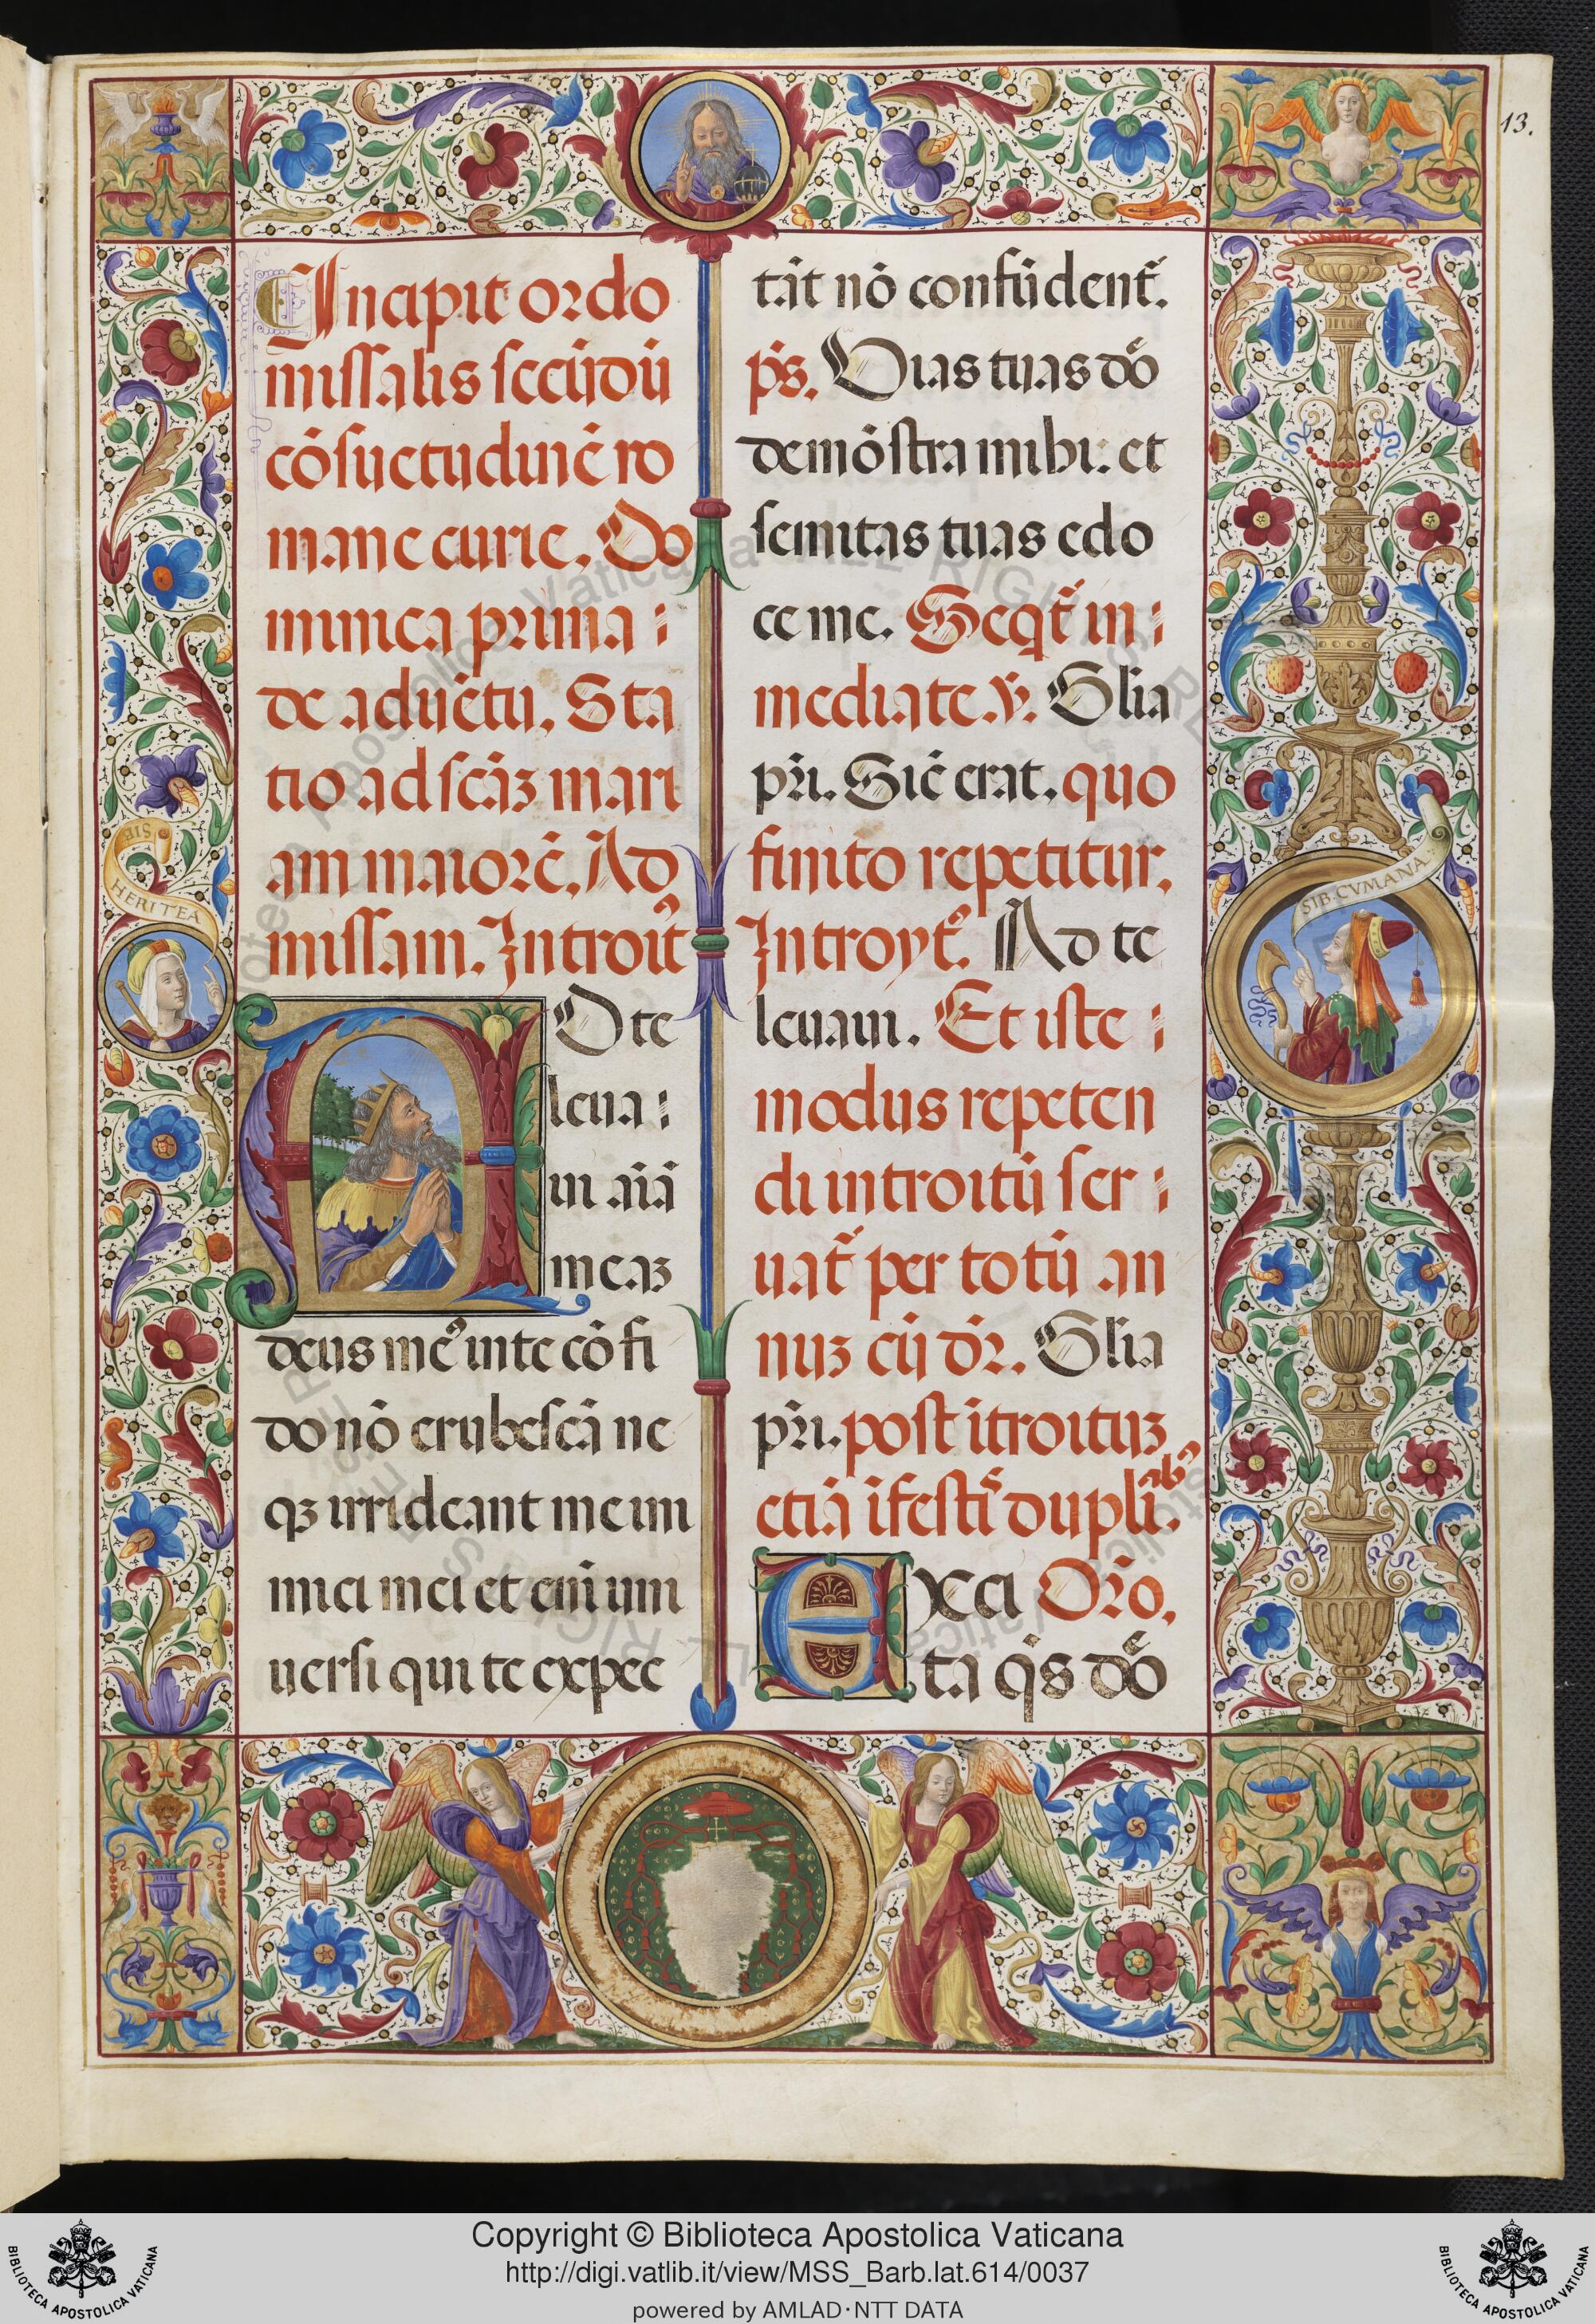 13.
Incipit ordo
missalis scd'ȝ
cōsuetudinē ro
mane curie. Do
minica prima
de aduētu. Sta
tio ad scāȝ mari
am maiorē. Ad
missam. Introit᷒
AD te
leua
ui aīā
meaȝ
deus me᷒ in te cōfi
do nō erubescā ne
qȝ irrideant me ini
mici mei et eni᷒ uni
uersi qui te expec
tāt nō confūdent᷑.
ps. Vias tuas dō
demōstra mihi: et
semitas tuas edo
ce me. Seqt᷑ in
mediate. v. Glia
pri. Sic̄ erat. quo
finito repetitur.
Introyt᷒. Ad te
leuaui. Et iste
modus repeten
di introitū ser
uat᷑ per totū an
nuȝ cū dr̄. Glia
pri. post ītroituȝ
etiā ī festis dupli.ab᷒
Exci Oro.
ta qs dō
SIB
HERITEA
SIB. CVMANA
Copyright © Biblioteca Apostolica Vaticana
http://digi.vatlib.it/view/MSS_Barb.lat.614/0037
powered by AMLAD·NTT DATA
BIBLIOTECA APOSTOLICA VATICANA
BIBLIOTECA APOSTOLICA VATICANA